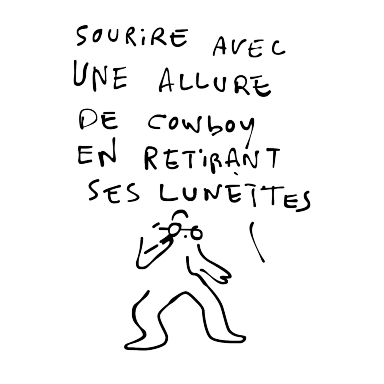 SOURIRE AVEC
UNE ALLURE
DE COWBOY
EN RETIRANT
SES LUNETTES